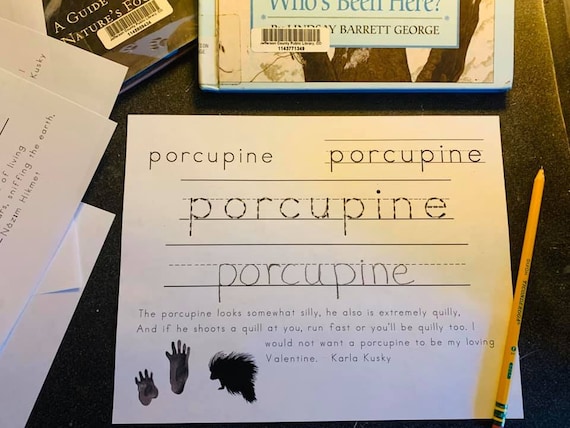 A GUIDE
NATURE'S FO
1143499434
Who's Been Here?
LINDSAY BARRETT GEORGE
Jefferson County Public Library, CO
1143771349
Kusky
of living
sniffing the earth,
Nâzim Hikmet
porcupine porcupine
porcupine
porcupine
The porcupine looks somewhat silly, he also is extremely quilly,
And if he shoots a quill at you, run fast or you'll be quilly too. I
would not want a porcupine to be my loving
Valentine. Karla Kusky